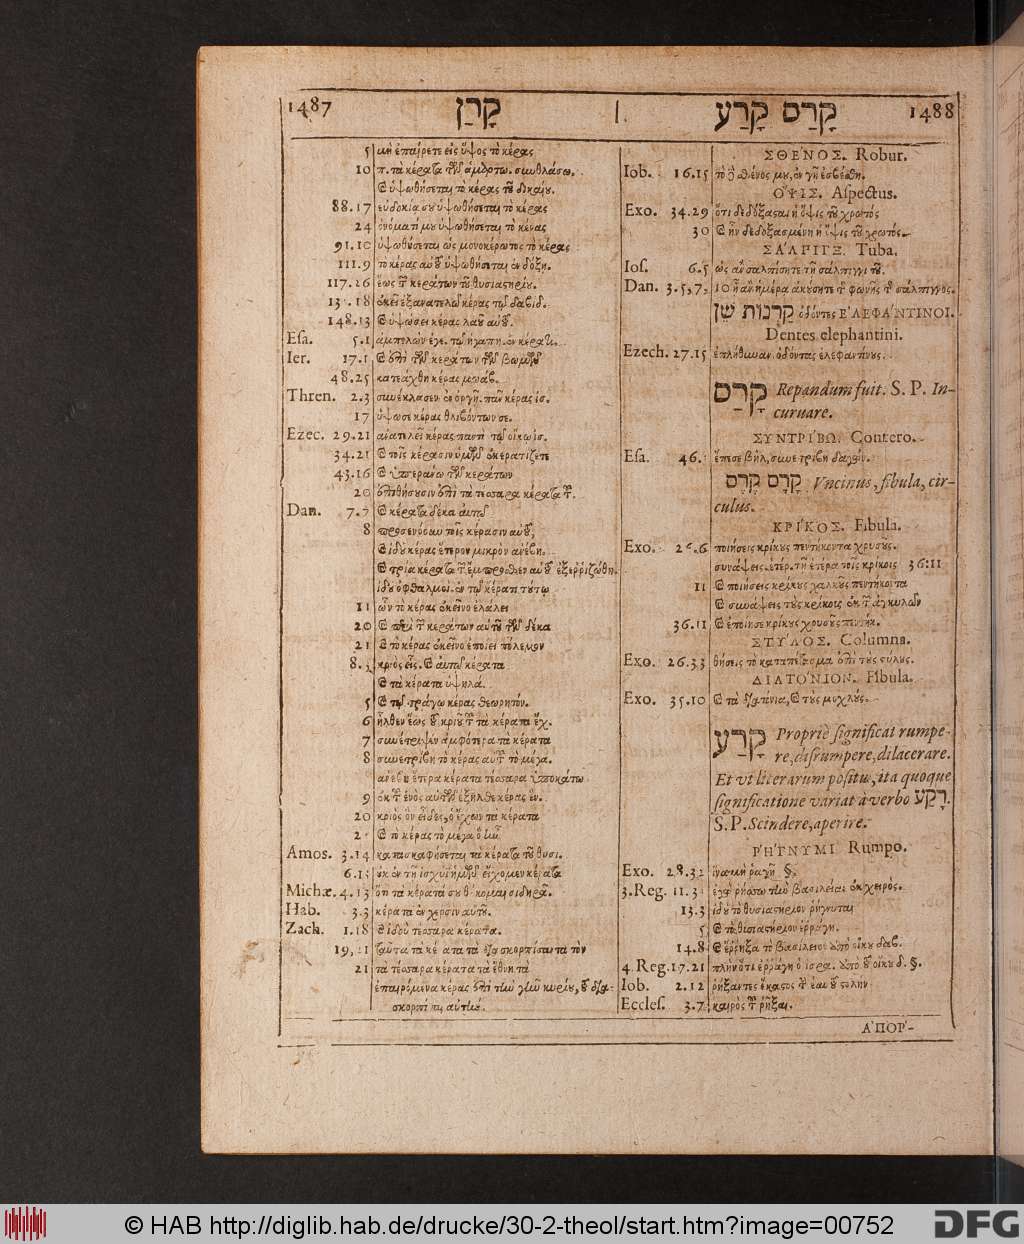 1487 קָרַן | קָרַס קָרַע 1488
5 μὴ ἐπαίρετε εἰς ὕψος τὸ κέρας
10 τὰ κέρατα
ὑψωθήσεται τὸ κέρας τοῦ δικαίου.
88.17 εὐδοκία σου ὑψωθήσεται τὸ κέρας
24 ὀνόματί μου ὑψωθήσεται τὸ κέρας
91.10 ὑψωθήσεται ὡς μονοκέρωτος τὸ κέρας
111.9 τὸ κέρας αὐτοῦ ὑψωθήσεται ἐν δόξῃ.
117.26 ἕως τῶν κεράτων τοῦ θυσιαστηρίου.
18 ἐκεῖ ἐξανατελῶ κέρας τῷ δαβίδ.
148.13 ὑψώσει κέρας λαοῦ αὐτοῦ.
Esa. 5.1 ἀμπελὼν
Ier. 17.1 ἐπὶ τῶν κεράτων τῶν βωμῶν
48.25 κατεάχθη κέρας μωάβ.
Thren. 2.3 συνέκλασεν ἐν ὀργῇ. πᾶν κέρας ἰσ.
17 ὕψωσε κέρας θλιβόντων σε.
Ezec. 29.21 ἀνατελεῖ κέρας παντὶ τῷ οἴκῳ ἰσ.
34.21 τοῖς κέρασιν ὑμῶν ἐκερατίζετε
43.16 ὑπεράνω τῶν κεράτων
20 ἐπιθήσουσιν ἐπὶ τὰ τέσσαρα κέρατα
Dan. 7.7 κέρατα δέκα αὐτῷ
8 προσενόουν τοῖς κέρασιν αὐτοῦ,
ἰδοὺ κέρας ἕτερον μικρὸν ἀνέβη.
τρία κέρατα τῶν ἔμπροσθεν αὐτοῦ ἐξερριζώθη.
ἰδοὺ ὀφθαλμοὶ ἐν τῷ κέρατι τούτῳ
11 ὧν τὸ κέρας ἐκεῖνο ἐλάλει
20 περὶ τῶν κεράτων αὐτοῦ τῶν δέκα
21 τὸ κέρας ἐκεῖνο ἐποίει πόλεμον
8.3 κριὸς εἷς. αὐτῷ κέρατα
τὰ κέρατα ὑψηλά.
5 τῷ τράγῳ κέρας θεωρητόν.
6 ἦλθεν ἕως τοῦ κριοῦ τοῦ τὰ κέρατα ἔχ.
7 συνέτριψεν ἀμφότερα τὰ κέρατα
8 συνετρίβη τὸ κέρας αὐτοῦ τὸ μέγα.
ἀνέβη ἕτερα κέρατα τέσσαρα ὑποκάτω
9 ἐκ τοῦ ἑνὸς αὐτῶν ἐξῆλθε κέρας ἕν.
20 κριὸς ὃν εἶδες, ὁ ἔχων τὰ κέρατα
τὸ κέρας τὸ μέγα ὃ ἦν
Amos. 3.14 κατασκαφήσεται τὰ κέρατα τοῦ θυσι.
6.13 οὐκ ἐν τῇ ἰσχύϊ ἡμῶν εἴχομεν κέρατα
Michæ. 4.13 ὅτι τὰ κέρατά σου θήσομαι σιδηρᾶ.
Hab. 3.3 κέρατα ἐν χερσὶν αὐτοῦ.
Zach. 1.18 ἰδοὺ τέσσαρα κέρατα.
19, 21 ταῦτα τὰ κέρατα τὰ διασκορπίσαντα τὸν
21 τὰ τέσσαρα κέρατα τὰ ἔθνη τὰ
ἐπαιρόμενα κέρας ἐπὶ τὴν γῆν κυρίου, τοῦ δια-
σκορπίσαι αὐτήν.
ΣΘΕ´ΝΟΣ. Robur.
Iob. 16.15 τὸ δὲ σθένος μου, ἐν γῇ ἐσβέσθη.
ΟΨΙΣ. Aspectus.
Exo. 34.29 ὅτι δεδόξασται ἡ ὄψις τοῦ χρωτός
30 ἦν δεδοξασμένη ἡ ὄψις τοῦ χρωτός.
ΣΑ´ΛΠΙΓΞ. Tuba.
Ios. 6.5 ὡς ἂν σαλπίσητε τῇ σάλπιγγι τοῦ.
Dan. 3.5,7. 10 ἡμέρᾳ ἀκούσητε τῆς φωνῆς τῆς σάλπιγγος.
קַרְנוֹת שֵׁן ὀδόντες ΕΛΕΦΑ´ΝΤΙΝΟΙ.
Dentes elephantini.
Ezech. 27.15 ἐπλήθυναν ὀδόντας ἐλεφαντίνους.
קָרַס Repandum fuit. S. P. In-
curuare.
ΣΥΝΤΡΙ´ΒΩ. Contero.
Esa. 46. ἔπεσε βὴλ, συνετρίβη δαγών.
קָרָס קֶרֶס Vncinus, fibula, cir-
culus.
ΚΡΙ´ΚΟΣ. Fibula.
Exo. 26.6 ποιήσεις κρίκους πεντήκοντα χρυσοῦς.
συνάψεις. ἑτέρ. τῇ ἑτέρᾳ τοῖς κρίκοις 36:11
11 ποιήσεις κρίκους χαλκοῦς πεντήκοντα
συνάψεις τοὺς κρίκους ἐκ τῶν ἀγκυλῶν
36.11 ἐποίησε κρίκους χρυσοῦς πεντήκ.
ΣΤΥ´ΛΟΣ. Columna.
Exo. 26.33 θήσεις τὸ καταπέτασμα ἐπὶ τοὺς στύλους.
ΔΙΑΤΟ´ΝΙΟΝ. Fibula.
Exo. 35.10 τὰ διατόνια, τοὺς μοχλούς.
קָרַע Propriè significat rumpe-
re, disrumpere, dilacerare.
Et vt literarum positu, ita quoque
significatione variat à verbo רָקַע.
S.P. Scindere, aperire.
ΡΗ´ΓΝΥΜΙ Rumpo.
Exo. 28.32 ἵνα μὴ ῥαγῇ §.
3.Reg. 11.3 ῥήσσω τὴν βασιλείαν ἐκ χειρός.
13.3 ἰδοὺ τὸ θυσιαστήριον ῥήγνυται
5 τὸ θυσιαστήριον ἐρράγη.
14.8 ἔρρηξα τὸ βασίλειον ἀπὸ οἴκου δαβ.
4.Reg. 17.21 πλὴν ὅτι ἐρράγη ὁ ἰσρα. ἀπὸ τοῦ οἴκου δ. §.
Iob. 2.12 ῥήξαντες ἕκαστος τὴν ἑαυτοῦ στολὴν
Eccles. 3.7 καιρὸς τοῦ ῥῆξαι.
ΑΠΟΡ-
© HAB http://diglib.hab.de/drucke/30-2-theol/start.htm?image=00752 DFG